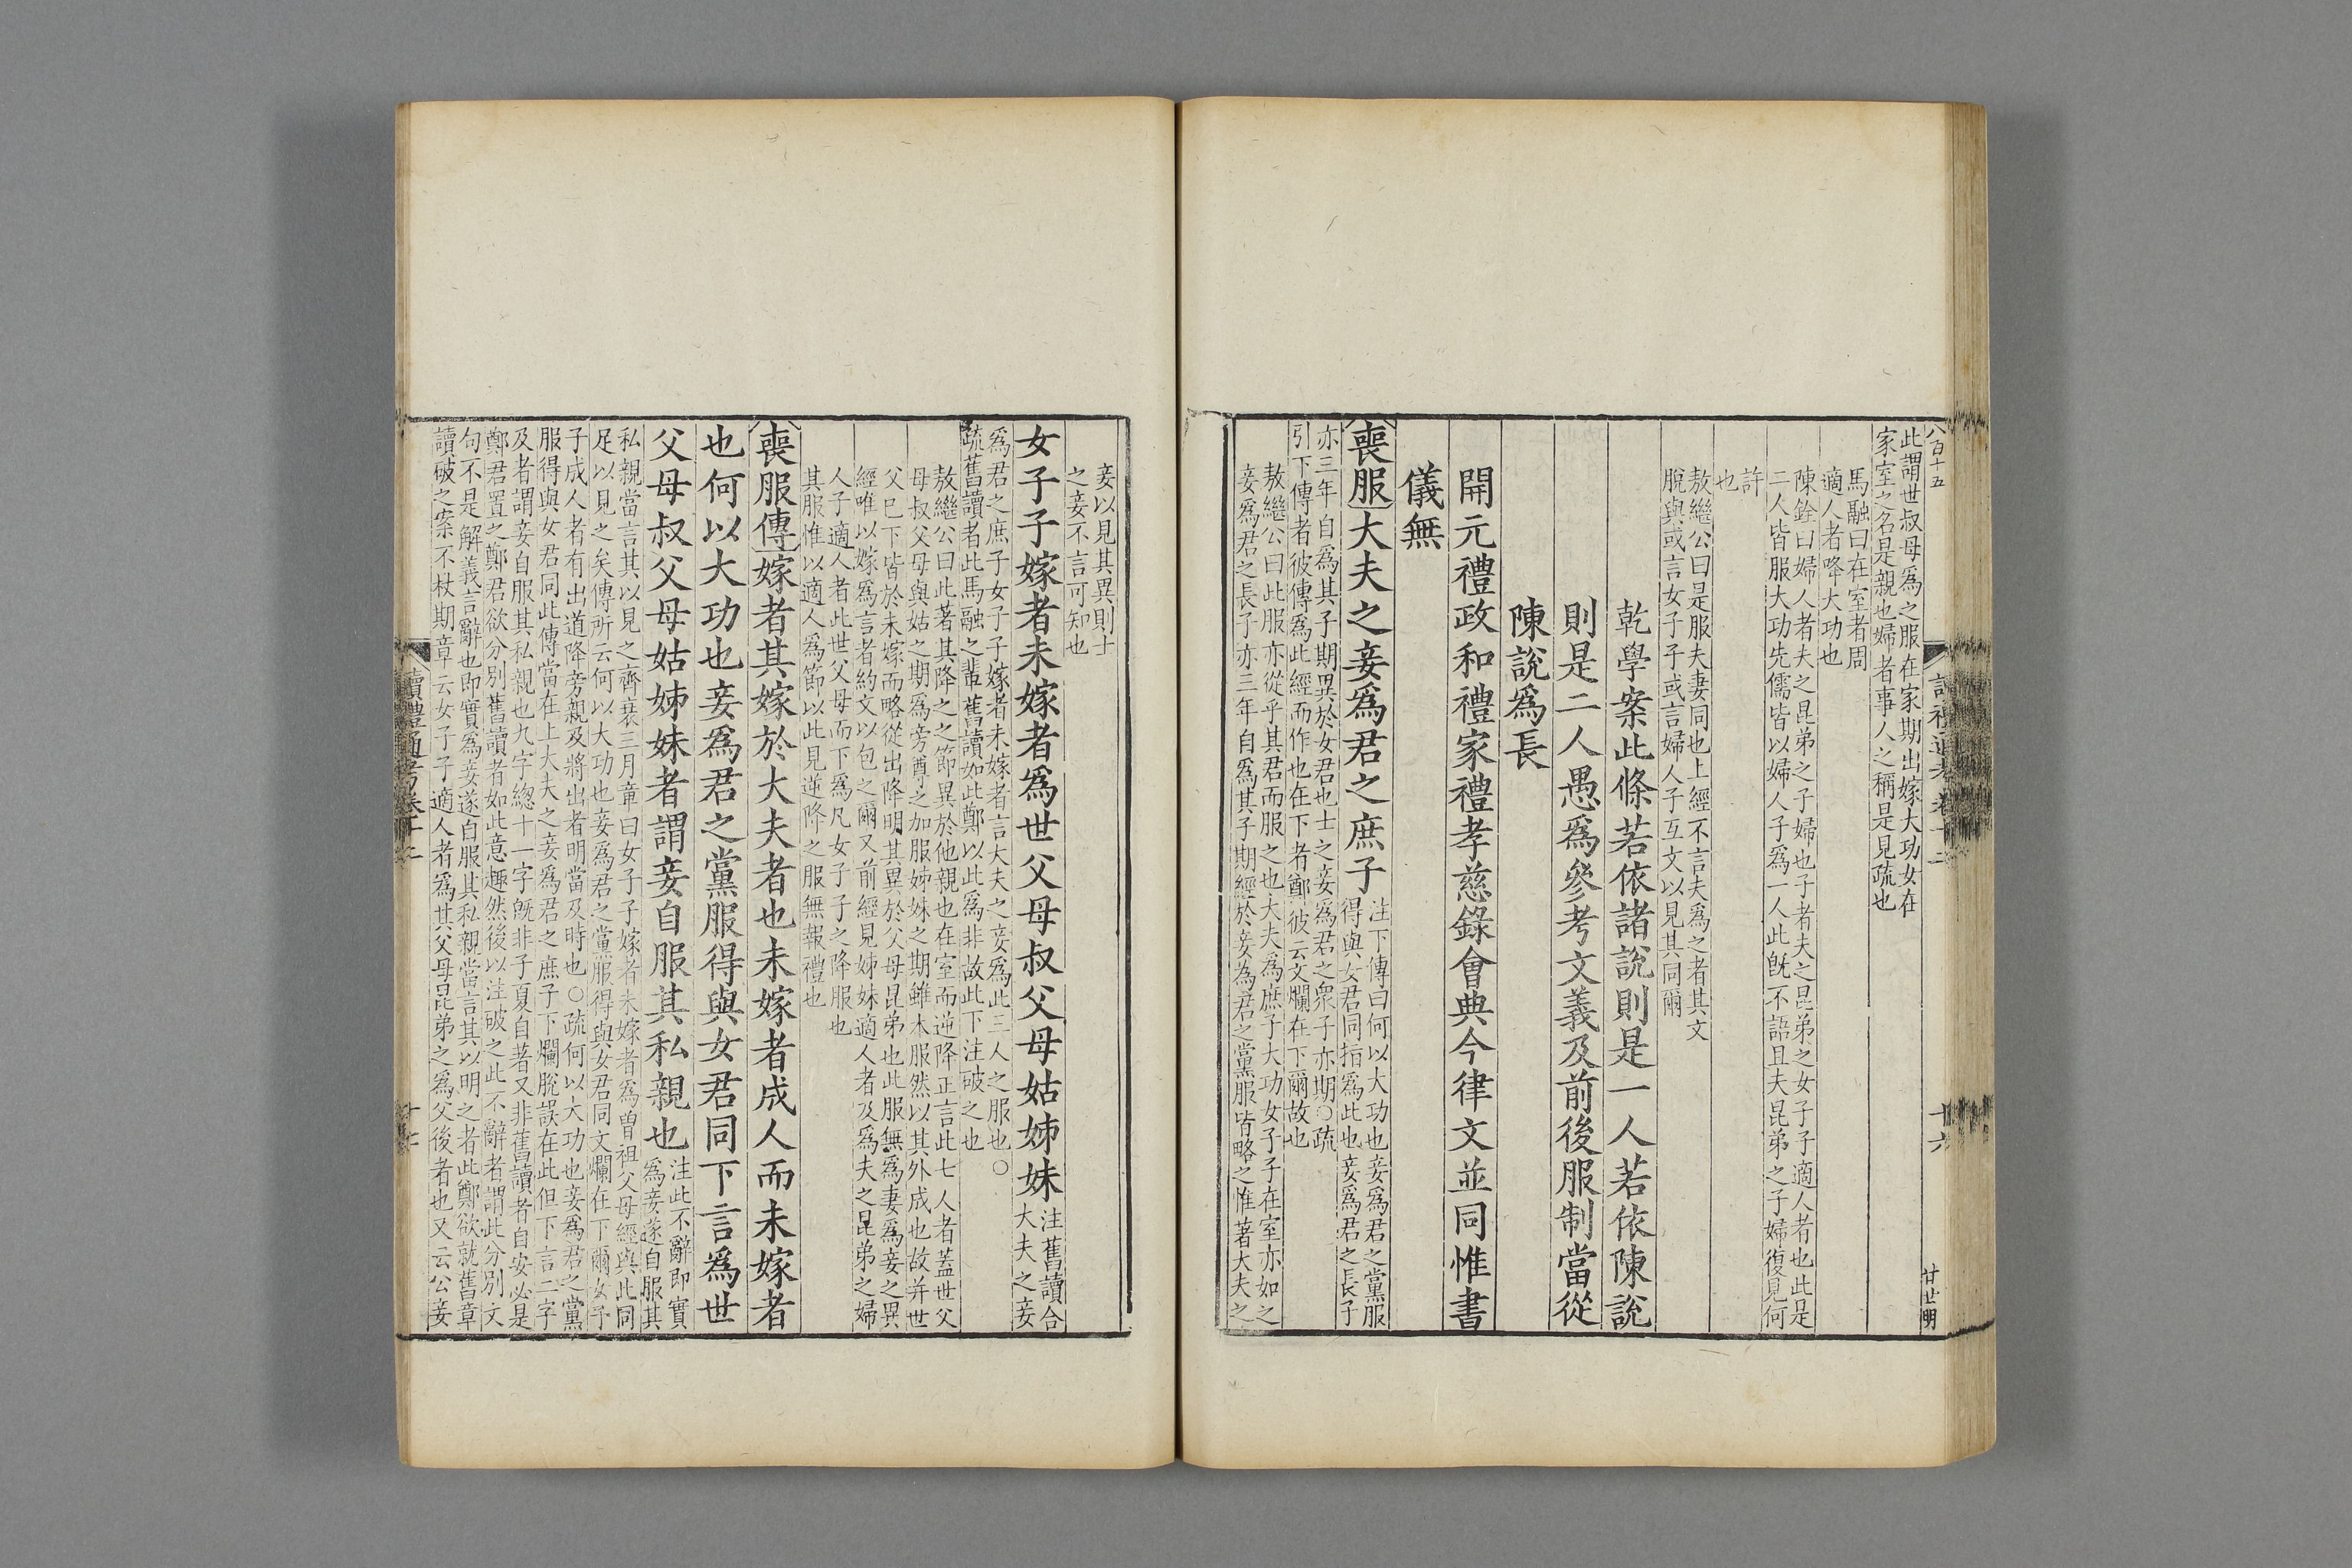 八百十五
此謂世叔母爲之服在家期出嫁大功女在
家室之名是親也婦者事人之稱是見疏也
馬融曰在室者周
適人者降大功也
陳銓曰婦人者夫之昆弟之子婦也子者夫之昆弟之女子子適人者也此是
二人皆服大功先儒皆以婦人子爲一人此旣不語且夫昆弟之子婦復見何
許
也
敖繼公曰是服夫妻同也上經不言夫爲之者其文
脫與或言女子子或言婦人子互文以見其同爾
乾學案此條若依諸說則是一人若依陳說
則是二人愚爲參考文義及前後服制當從
陳說爲長
開元禮政和禮家禮孝慈錄會典今律文並同惟書
儀無
喪服大夫之妾爲君之庶子
注下傳曰何以大功也妾爲君之黨服
得與女君同指爲此也妾爲君之長子
亦三年自爲其子期異於女君也士之妾爲君之衆子亦期○疏
引下傳者彼傳爲此經而作也在下者鄭彼云文爛在下爾故也
敖繼公曰此服亦從乎其君而服之也大夫爲庶子大功女子子在室亦如之
妾爲君之長子亦三年自爲其子期經於妾為君之黨服皆略之惟著大夫之
讀禮通考卷十二
十六
廿世明
妾以見其異則士
之妾不言可知也
女子子嫁者未嫁者爲世父母叔父母姑姊妹
注舊讀合
大夫之妾
爲君之庶子女子子嫁者未嫁者言大夫之妾爲此三人之服也○
疏舊讀者此馬融之輩舊讀如此鄭以此爲非故此下注破之也
敖繼公曰此著其降之之節異於他親也在室而逆降正言此七人者蓋世父
母叔父母與姑之期爲旁尊之加服姊妹之期雖本服然以其外成也故并世
父已下皆於未嫁而略從出降明其異於父母昆弟也此服無爲妻爲妾之異
經唯以嫁爲言者約文以包之爾又前經見姊妹適人者及爲夫之昆弟之婦
人子適人者此世父母而下爲凡女子子之降服也
其服惟以適人爲節以此見逆降之服無報禮也
喪服傳嫁者其嫁於大夫者也未嫁者成人而未嫁者
也何以大功也妾爲君之黨服得與女君同下言爲世
父母叔父母姑姊妹者謂妾自服其私親也
注此不辭即實
爲妾遂自服其
私親當言其以見之齊衰三月章曰女子子嫁者未嫁者爲曾祖父母經與此同
足以見之矣傳所云何以大功也妾爲君之黨服得與女君同文爛在下爾女子
子成人者有出道降旁親及將出者明當及時也○疏何以大功也妾爲君之黨
服得與女君同此傳當在上大夫之妾爲君之庶子下爛脫誤在此但下言二字
及者謂妾自服其私親也九字總十一字旣非子夏自著又非舊讀者自安必是
鄭君置之鄭君欲分別舊讀者如此意趣然後以注破之此不辭者謂此分別文
句不是解義言辭也即實爲妾遂自服其私親當言其以明之者此鄭欲就舊章
讀破之案不杖期章云女子子適人者爲其父母昆弟之爲父後者也又云公妾
讀禮通考卷十二
十七